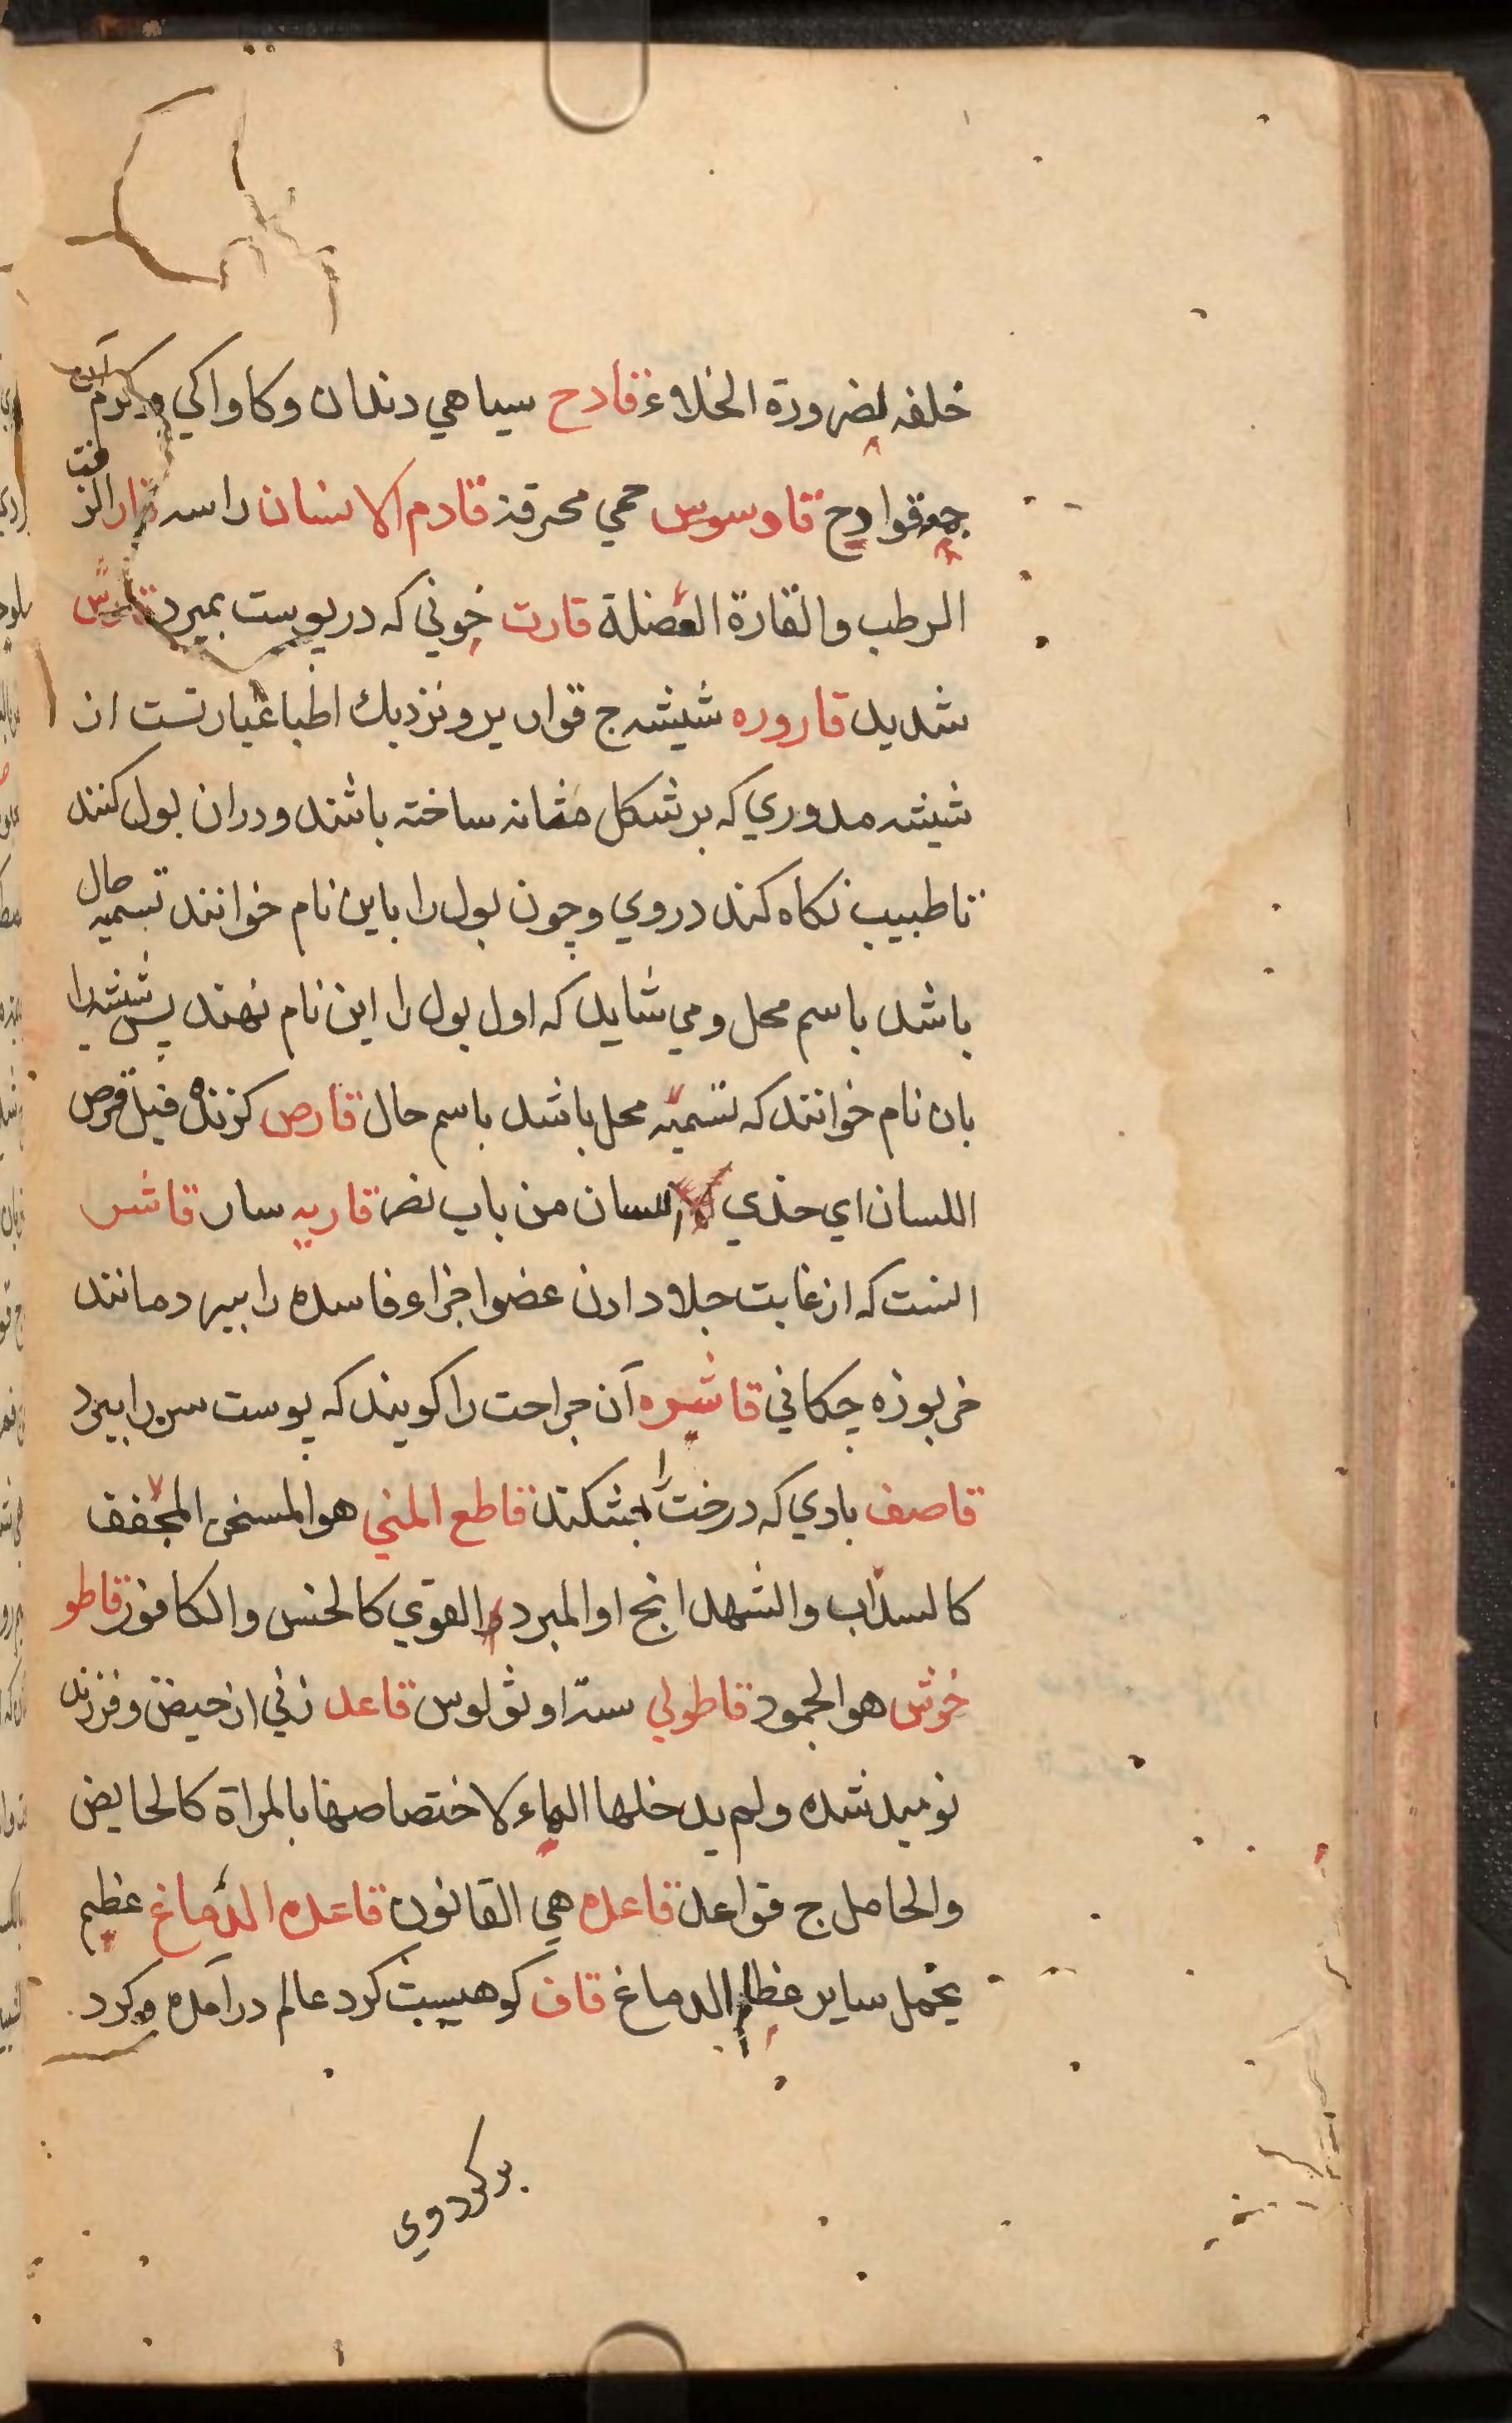 خلفه لضرورة الخلاء قادح سیاهي دندان وکاواکي وکرم آن
جمع قوادح قاوسوس حمي محرقه قادم الانسان راسه قار الزفت
الرطب والقارة الفضلة قارت خوني که در پوست بمیرد قارس
شدید قاروره شیشه ج قواریر ونزدیك اطبا عبارتست از
شیشه مدوري که بر شکل مثانه ساخته باشند ودران بول کنند
تا طبیب نکاه کند دروي وچون بول را باین نام خوانند تسمیه حال
باشد باسم محل ومي شاید که اول بول را این نام نهند پس شیشه را
بان نام خوانند که تسمیه محل باشد باسم حال قارص کزنده قیل قرص
اللسان اي حذي اللسان من باب نصر قاریه سار قاشر
انست که از غایت جلا دادن عضو اجزاء فاسده را ببرد مانند
خربوزه چکاني قاشره آن جراحت را کویند که پوست سر را ببرد
قاصف بادي که درخت را بشکند قاطع المني هو المسخن المجفف
کالسداب والشهدانج او المبرد القوي کالخس والکافور قاطو
خوش هو الجمود قاطولي ستراونولوس قاعد زني از حیض وفرزند
نومید شده ولم یدخلها الهاء لاختصاصها بالمراة کالحایض
والحامل ج قواعد قاعده هي القانون قاعده الدماغ عظیم
یحمل سایر عظام الدماغ قاف کوهیست کرد عالم درآمده وکرد
بر کرد وي